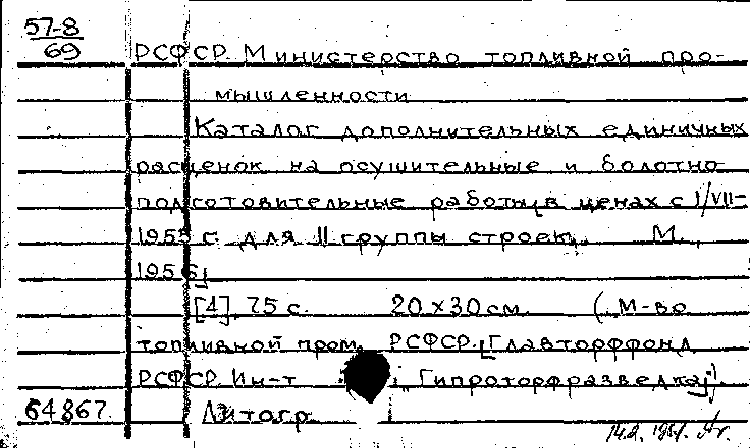 57-8
69
РСФСР. Министерство топливной про-
мышленности
Каталог дополнительных единичных
расценок на осушительные и болотно-
подготовительные работы [в ценах с 1/VII-
1955 г. для II группы строек]. М.,
1956]
[4], 75 с. 20 x 30 см. (М-во
топливной пром. РСФСР. [Главторффонд
РСФСР. Ин-т "Гипроторфразведка]).
64867 Литогр.